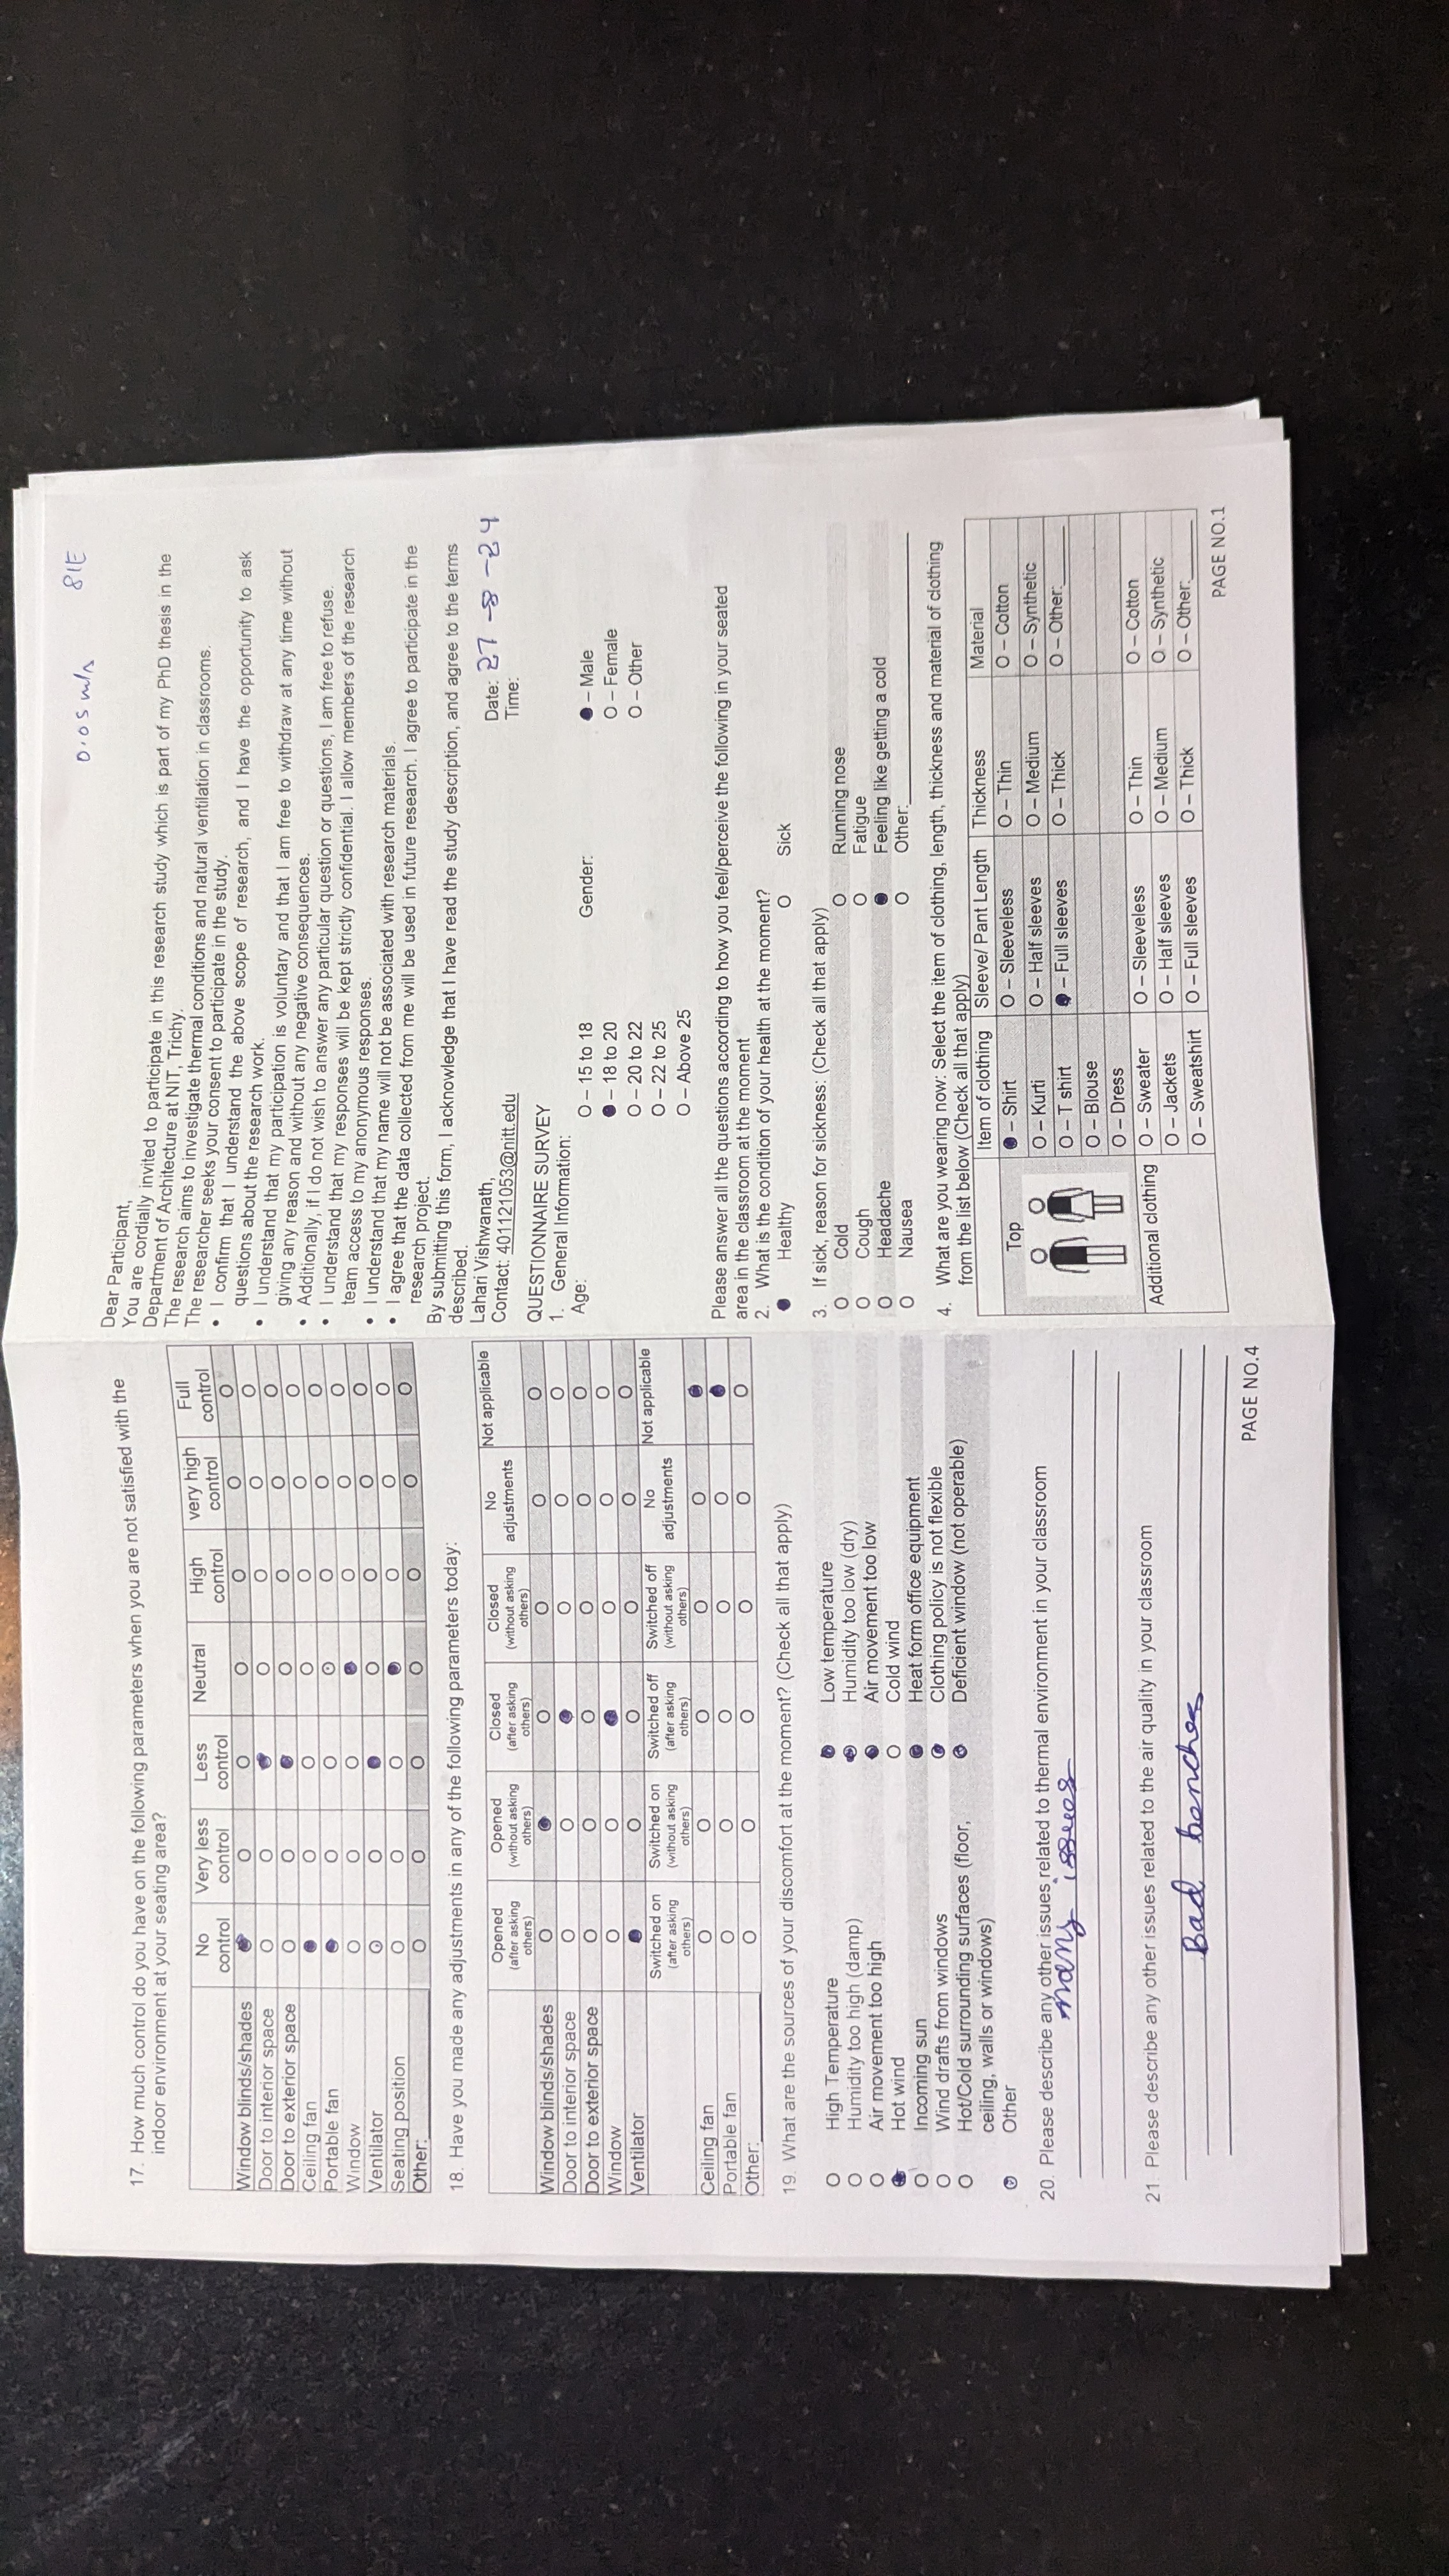 17. How much control do you have on the following parameters when you are not satisfied with the
indoor environment at your seating area?
No control Very less control Less control Neutral High control very high control Full control
Window blinds/shades ● O O O O O O
Door to interior space O O ● O O O O
Door to exterior space O O ● O O O O
Ceiling fan ● O O O O O O
Portable fan ● O O O O O O
Window O O O ● O O O
Ventilator O O ● O O O O
Seating position O O O ● O O O
Other: O O O O O O O
18. Have you made any adjustments in any of the following parameters today:
Opened (after asking others) Opened (without asking others) Closed (after asking others) Closed (without asking others) No adjustments Not applicable
Window blinds/shades O ● O O O O
Door to interior space O O ● O O O
Door to exterior space O O O O O O
Window O O ● O O O
Ventilator ● O O O O O
Switched on (after asking others) Switched on (without asking others) Switched off (after asking others) Switched off (without asking others) No adjustments Not applicable
Ceiling fan O O O O O ●
Portable fan O O O O O ●
Other: O O O O O O
19. What are the sources of your discomfort at the moment? (Check all that apply)
O High Temperature ● Low temperature
O Humidity too high (damp) ● Humidity too low (dry)
O Air movement too high ● Air movement too low
● Hot wind O Cold wind
O Incoming sun ● Heat form office equipment
O Wind drafts from windows ● Clothing policy is not flexible
O Hot/Cold surrounding surfaces (floor, ● Deficient window (not operable)
ceiling, walls or windows)
● Other
20. Please describe any other issues related to thermal environment in your classroom
many issues
21. Please describe any other issues related to the air quality in your classroom
Bad benches
PAGE NO.4
0.05 m/s 81E
Dear Participant,
You are cordially invited to participate in this research study which is part of my PhD thesis in the
Department of Architecture at NIT, Trichy.
The research aims to investigate thermal conditions and natural ventilation in classrooms.
The researcher seeks your consent to participate in the study.
• I confirm that I understand the above scope of research, and I have the opportunity to ask
questions about the research work.
• I understand that my participation is voluntary and that I am free to withdraw at any time without
giving any reason and without any negative consequences.
• Additionally, if I do not wish to answer any particular question or questions, I am free to refuse.
• I understand that my responses will be kept strictly confidential. I allow members of the research
team access to my anonymous responses.
• I understand that my name will not be associated with research materials.
• I agree that the data collected from me will be used in future research. I agree to participate in the
research project.
By submitting this form, I acknowledge that I have read the study description, and agree to the terms
described.
Lahari Vishwanath, Date: 27-8-24
Contact: 401121053@nitt.edu Time:
QUESTIONNAIRE SURVEY
1. General Information:
Age: O – 15 to 18 Gender: ● – Male
● – 18 to 20 O – Female
O – 20 to 22 O – Other
O – 22 to 25
O – Above 25
Please answer all the questions according to how you feel/perceive the following in your seated
area in the classroom at the moment
2. What is the condition of your health at the moment?
● Healthy O Sick
3. If sick, reason for sickness: (Check all that apply)
O Cold O Running nose
O Cough O Fatigue
O Headache ● Feeling like getting a cold
O Nausea O Other:
4. What are you wearing now: Select the item of clothing, length, thickness and material of clothing
from the list below (Check all that apply)
Item of clothing Sleeve/ Pant Length Thickness Material
Top ● – Shirt O – Sleeveless O – Thin O – Cotton
O – Kurti O – Half sleeves O – Medium O – Synthetic
O – T shirt ● – Full sleeves O – Thick O – Other:
O – Blouse
O – Dress
Additional clothing O – Sweater O – Sleeveless O – Thin O – Cotton
O – Jackets O – Half sleeves O – Medium O – Synthetic
O – Sweatshirt O – Full sleeves O – Thick O – Other:
PAGE NO.1